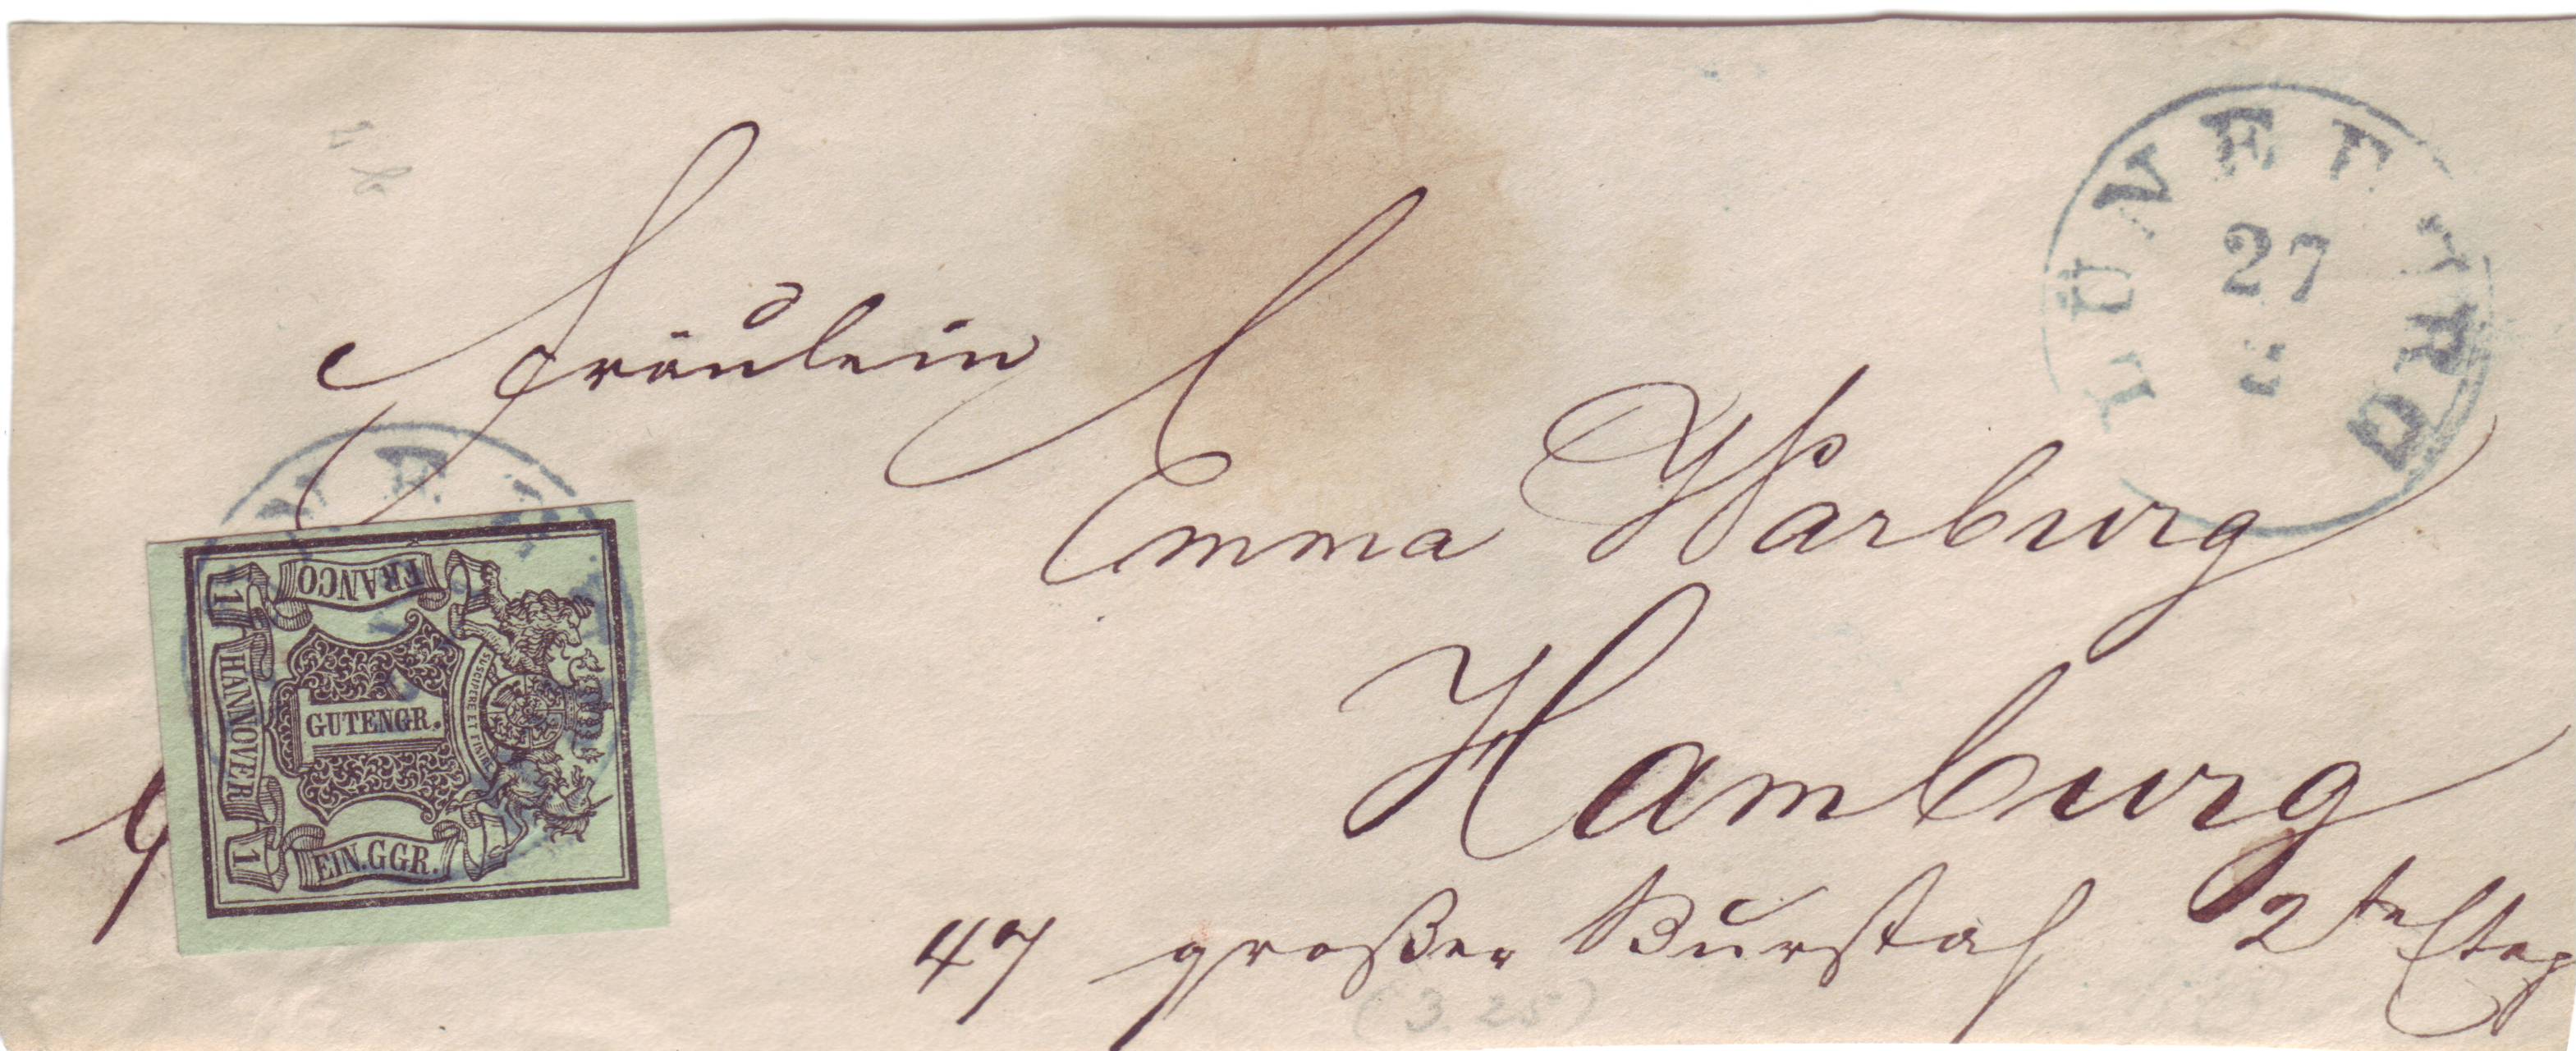 LÜNEBURG
27
Fräulein
Emma Warburg
Hamburg
47 großer Burstah 2te Etag
(3.25)
FRANCO
1
HANNOVER
1
EIN.GGR.
1
GUTENGR.
SUSCIPERE ET FINIRE